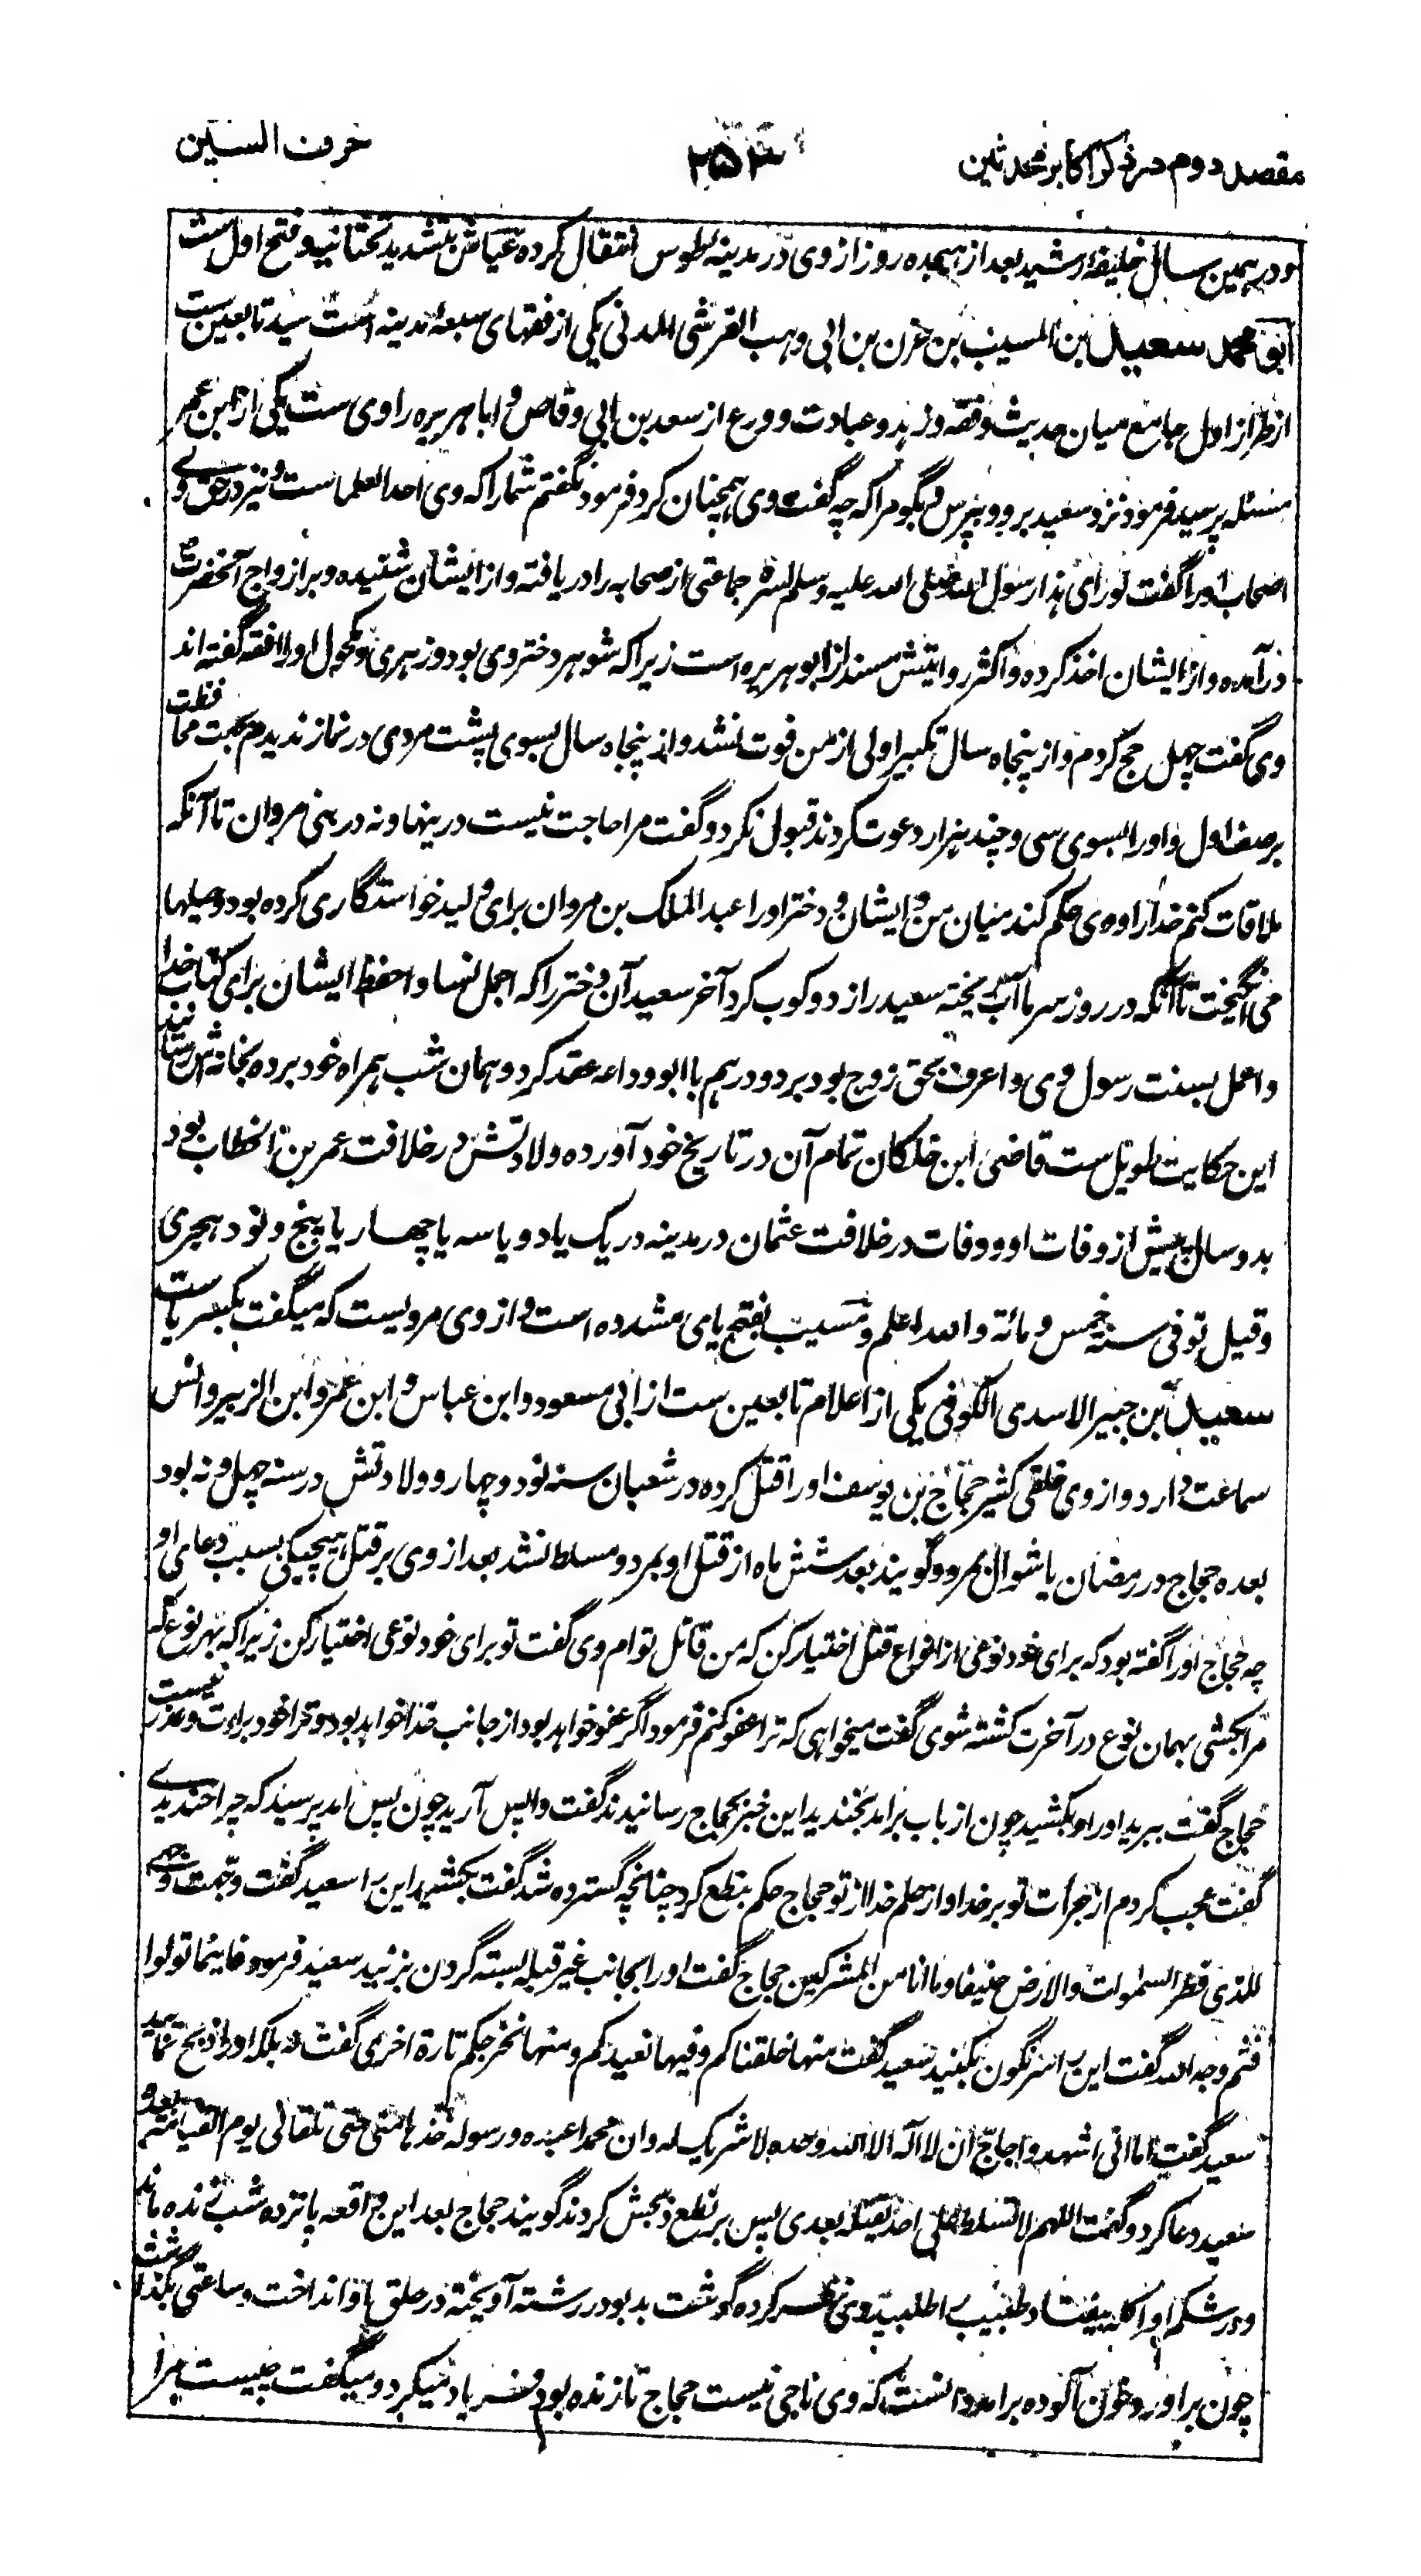 مقصد دوم در ذکر اکابر محدثین
۲۵۳
حرف السین
و در همین سال خلیفه رشید بعد از هیجده روز از وی در مدینه طوس انتقال کرده عیاش بتشدید تحتانیه و فتح اول ست
ابو محمد سعید بن المسیب بن حزن بن ابی وهب القرشی المدنی یکی از فقهای سبعه مدینه است سید تابعین ست
از طراز اول جامع میان حدیث و فقه و زهد و عبادت و ورع از سعد بن ابی وقاص و ابا هریره راوی ست یکی از ابن عمر
مسئله پرسید فرمود نزد سعید برو و بپرس و بگو مرا که چه گفت وی همچنان کرد فرمود نگفتم شما را که وی احد العلما ست و نیز در حق وی
اصحاب او را گفت لو رای هذا رسول الله صلی الله علیه وسلم لسره جماعتی از صحابه را دریافته و از ایشان شنیده و بر ازواج آنحضرت
درآمده و از ایشان اخذ کرده و اکثر روایتش مسند از ابو هریره است زیرا که شوهر دختر وی بود و زهری و مکحول او را افقه گفته اند
وی گفت چهل حج کردم و از پنجاه سال تکبیر اولی از من فوت نشد و از پنجاه سال بسوی پشت مردی در نماز ندیدم بجهت محافظت
بر صف اول و او را بسوی سی و چند هزار دعوت کردند قبول نکرد و گفت مرا حاجت نیست در ینها و نه در بنی مروان تا آنکه
ملاقات کنم خدا را و وی حکم کند میان من و ایشان و دختر او را عبد الملک بن مروان برای ولید خواستگاری کرده بود و حیلها
می انگیخت تا آنکه در روز سرما آب ریخته سعید را زد و کوب کرد آخر سعید آن دختر را که اجمل نسا و احفظ ایشان برای کتاب خدا
و اعمل بسنت رسول وی و اعرف بحق زوج بود بر دو درهم با ابو وداعه عقد کرد و همان شب همراه خود برده بخانه اش رسانید
این حکایت طویل ست قاضی ابن خلکان تمام آن در تاریخ خود آورده ولادتش در خلافت عمر بن الخطاب بود
بدو سال پیش از وفات او و وفات در خلافت عثمان در مدینه در یک یا دو یا سه یا چهار یا پنج و نود هجری
و قیل توفی سنه خمس و مائة و الله اعلم و مسیب بفتح یای مشدده است و از وی مرویست که میگفت بکسر یا ست
سعید بن جبیر الاسدی الکوفی یکی از اعلام تابعین ست از ابی مسعود و ابن عباس و ابن عمر و ابن الزبیر و انس
سماعت دارد و از وی خلقی کثیر حجاج بن یوسف او را قتل کرده در شعبان سنه نود و چهار و ولادتش در سنه چهل و نه بود
بعده حجاج در رمضان یا شوال بمرد و گویند بعد شش ماه از قتل او بمرد و مسلط نشد بعد از وی بر قتل هیچیکی بسبب دعای او
چه حجاج او را گفته بود که برای خود نوعی از انواع قتل اختیار کن که من قاتل توام وی گفت تو برای خود نوعی اختیار کن زیرا که بهر نوع که
مرا بکشی بهمان نوع در آخرت کشته شوی گفت میخواهی که ترا عفو کنم فرمود اگر عفو خواهد بود از جانب خدا خواهد بود و ترا خود براءت و عذر نیست
حجاج گفت ببرید او را و بکشید چون از باب برآمد بخندید این خبر بحجاج رسانیدند گفت واپس آرید چون پس آمد پرسید که چرا خندیدی
گفت عجب کردم از جرأت تو بر خدا و از حلم خدا از تو حجاج حکم بنطع کرد چنانچه گسترده شد گفت بکشید این را سعید گفت وجهت وجهی
للذی فطر السموات والارض حنیفا وما انا من المشرکین حجاج گفت او را بجانب غیر قبله بسته گردن بزنید سعید فرمود فاینما تولوا
فثم وجه الله گفت این را سرنگون بکنید سعید گفت منها خلقناکم وفیها نعیدکم ومنها نخرجکم تارة اخری گفت نه بلکه او را ذبح نمایید
سعید گفت اما انی اشهد واحاج ان لا اله الا الله وحده لا شریک له وان محمدا عبده ورسوله خذها منی حتی تلقانی یوم القیامة بعده
سعید دعا کرد و گفت اللهم لا تسلطه علی احد یقتله بعدی پس بر نطع ذبحش کردند گویند حجاج بعد این واقعه پانزده شب زنده ماند
و در شکم او اکله بیفتاد طبیب را طلبید وی کرده گوشت بدبو در رشته آویخته در حلق او انداخت و ساعتی بگذاشت
چون برآورد خون آلوده برآمد دانست که وی ناجی نیست حجاج تا زنده بود فریاد میکرد و میگفت چیست مرا